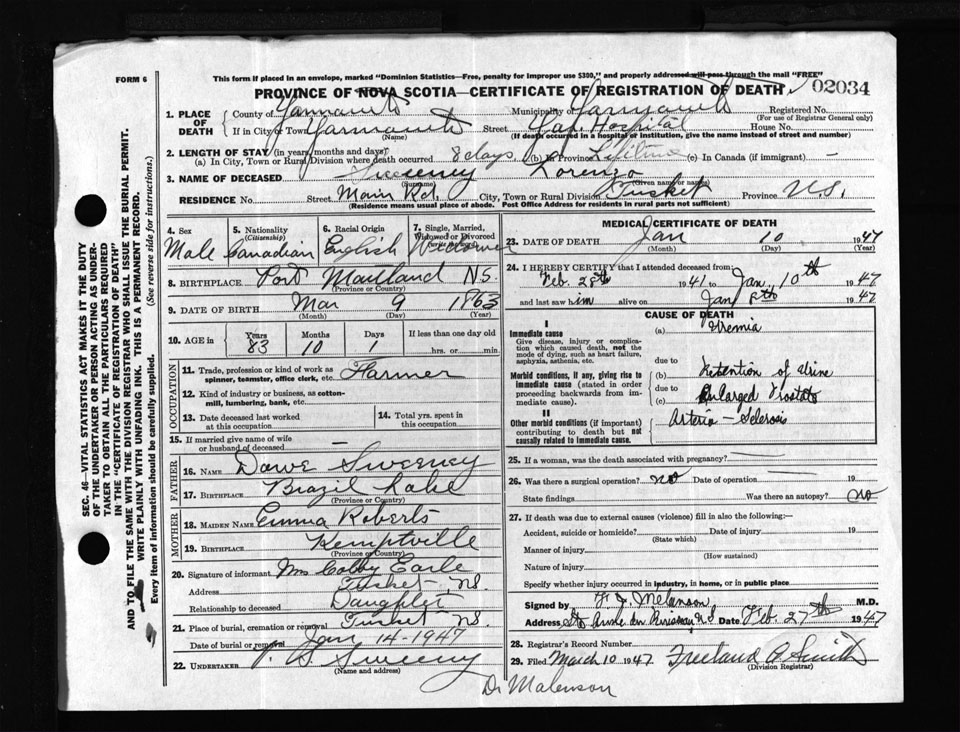 FORM 6
This form if placed in an envelope, marked "Dominion Statistics—Free, penalty for improper use $300," and properly addressed will pass through the mail "FREE"
PROVINCE OF NOVA SCOTIA—CERTIFICATE OF REGISTRATION OF DEATH 02034
SEC. 46—VITAL STATISTICS ACT MAKES IT THE DUTY
OF THE UNDERTAKER OR PERSON ACTING AS UNDER-
TAKER TO OBTAIN ALL THE PARTICULARS REQUIRED
IN THE "CERTIFICATE OF REGISTRATION OF DEATH"
AND TO FILE THE SAME WITH THE DIVISION REGISTRAR WHO SHALL ISSUE THE BURIAL PERMIT.
WRITE PLAINLY WITH UNFADING INK. THIS IS A PERMANENT RECORD.
Every item of information should be carefully supplied. (See reverse side for instructions.)
1. PLACE OF DEATH County of Yarmouth Municipality of Yarmouth Registered No.
(For use of Registrar General only)
If in City or Town Yarmouth Street Hospital House No.
(Name) (If death occurred in a hospital or institution, give the name instead of street and number)
2. LENGTH OF STAY (in years, months and days)
(a) In City, Town or Rural Division where death occurred 8 days (b) In Province Lifetime (c) In Canada (if immigrant) —
3. NAME OF DECEASED Sweeney Lorenzo
(Surname) (Given name or names)
RESIDENCE No. Street Main Rd. City, Town or Rural Division Tusket Province N.S.
(Residence means usual place of abode. Post Office Address for residents in rural parts not sufficient)
4. Sex Male
5. Nationality (Citizenship) Canadian
6. Racial Origin English
7. Single, Married, Widowed or Divorced (write the word) Widower
8. BIRTHPLACE Port Maitland N.S.
(Province or Country)
9. DATE OF BIRTH Mar 9 1863
(Month) (Day) (Year)
10. AGE in Years 83 Months 10 Days 1 If less than one day old hrs. or min.
OCCUPATION
11. Trade, profession or kind of work as spinner, teamster, office clerk, etc. Farmer
12. Kind of industry or business, as cotton-mill, lumbering, bank, etc.
13. Date deceased last worked at this occupation
14. Total yrs. spent in this occupation
15. If married give name of wife or husband of deceased —
FATHER
16. NAME Dawe Sweeney
17. BIRTHPLACE Brazil Lake
(Province or Country)
MOTHER
18. MAIDEN NAME Emma Roberts
19. BIRTHPLACE Kemptville
(Province or Country)
20. Signature of informant Mrs Colby Earle
Address Tusket N.S.
Relationship to deceased Daughter
21. Place of burial, cremation or removal Tusket N.S.
Date of burial or removal Jan 14-1947
22. UNDERTAKER V. S. Sweeny
(Name and address)
MEDICAL CERTIFICATE OF DEATH
23. DATE OF DEATH Jan 10 1947
(Month) (Day) (Year)
24. I HEREBY CERTIFY that I attended deceased from:
Feb. 28th 1941 to Jan. 10th 1947
and last saw him alive on Jan 8th 1947
CAUSE OF DEATH
I
Immediate cause
Give disease, injury or complication which caused death, not the mode of dying, such as heart failure, asphyxia, asthenia, etc.
(a) Uremia
due to
Morbid conditions, if any, giving rise to immediate cause (stated in order proceeding backwards from immediate cause).
(b) Retention of Urine
due to
(c) Enlarged Prostate
II
Other morbid conditions (if important) contributing to death but not causally related to immediate cause.
Arterio-Sclerosis
25. If a woman, was the death associated with pregnancy? —
26. Was there a surgical operation? no Date of operation 19
State findings Was there an autopsy? no
27. If death was due to external causes (violence) fill in also the following:—
Accident, suicide or homicide? Date of injury 19
(State which)
Manner of injury
(How sustained)
Nature of injury
Specify whether injury occurred in industry, in home, or in public place
Signed by F. J. Melanson M.D.
Address Ste Anne du Ruisseau N.S. Date Feb. 27th 1947
28. Registrar's Record Number
29. Filed March 10 1947 Freeland A. Smith
(Division Registrar)
Dr Malenson